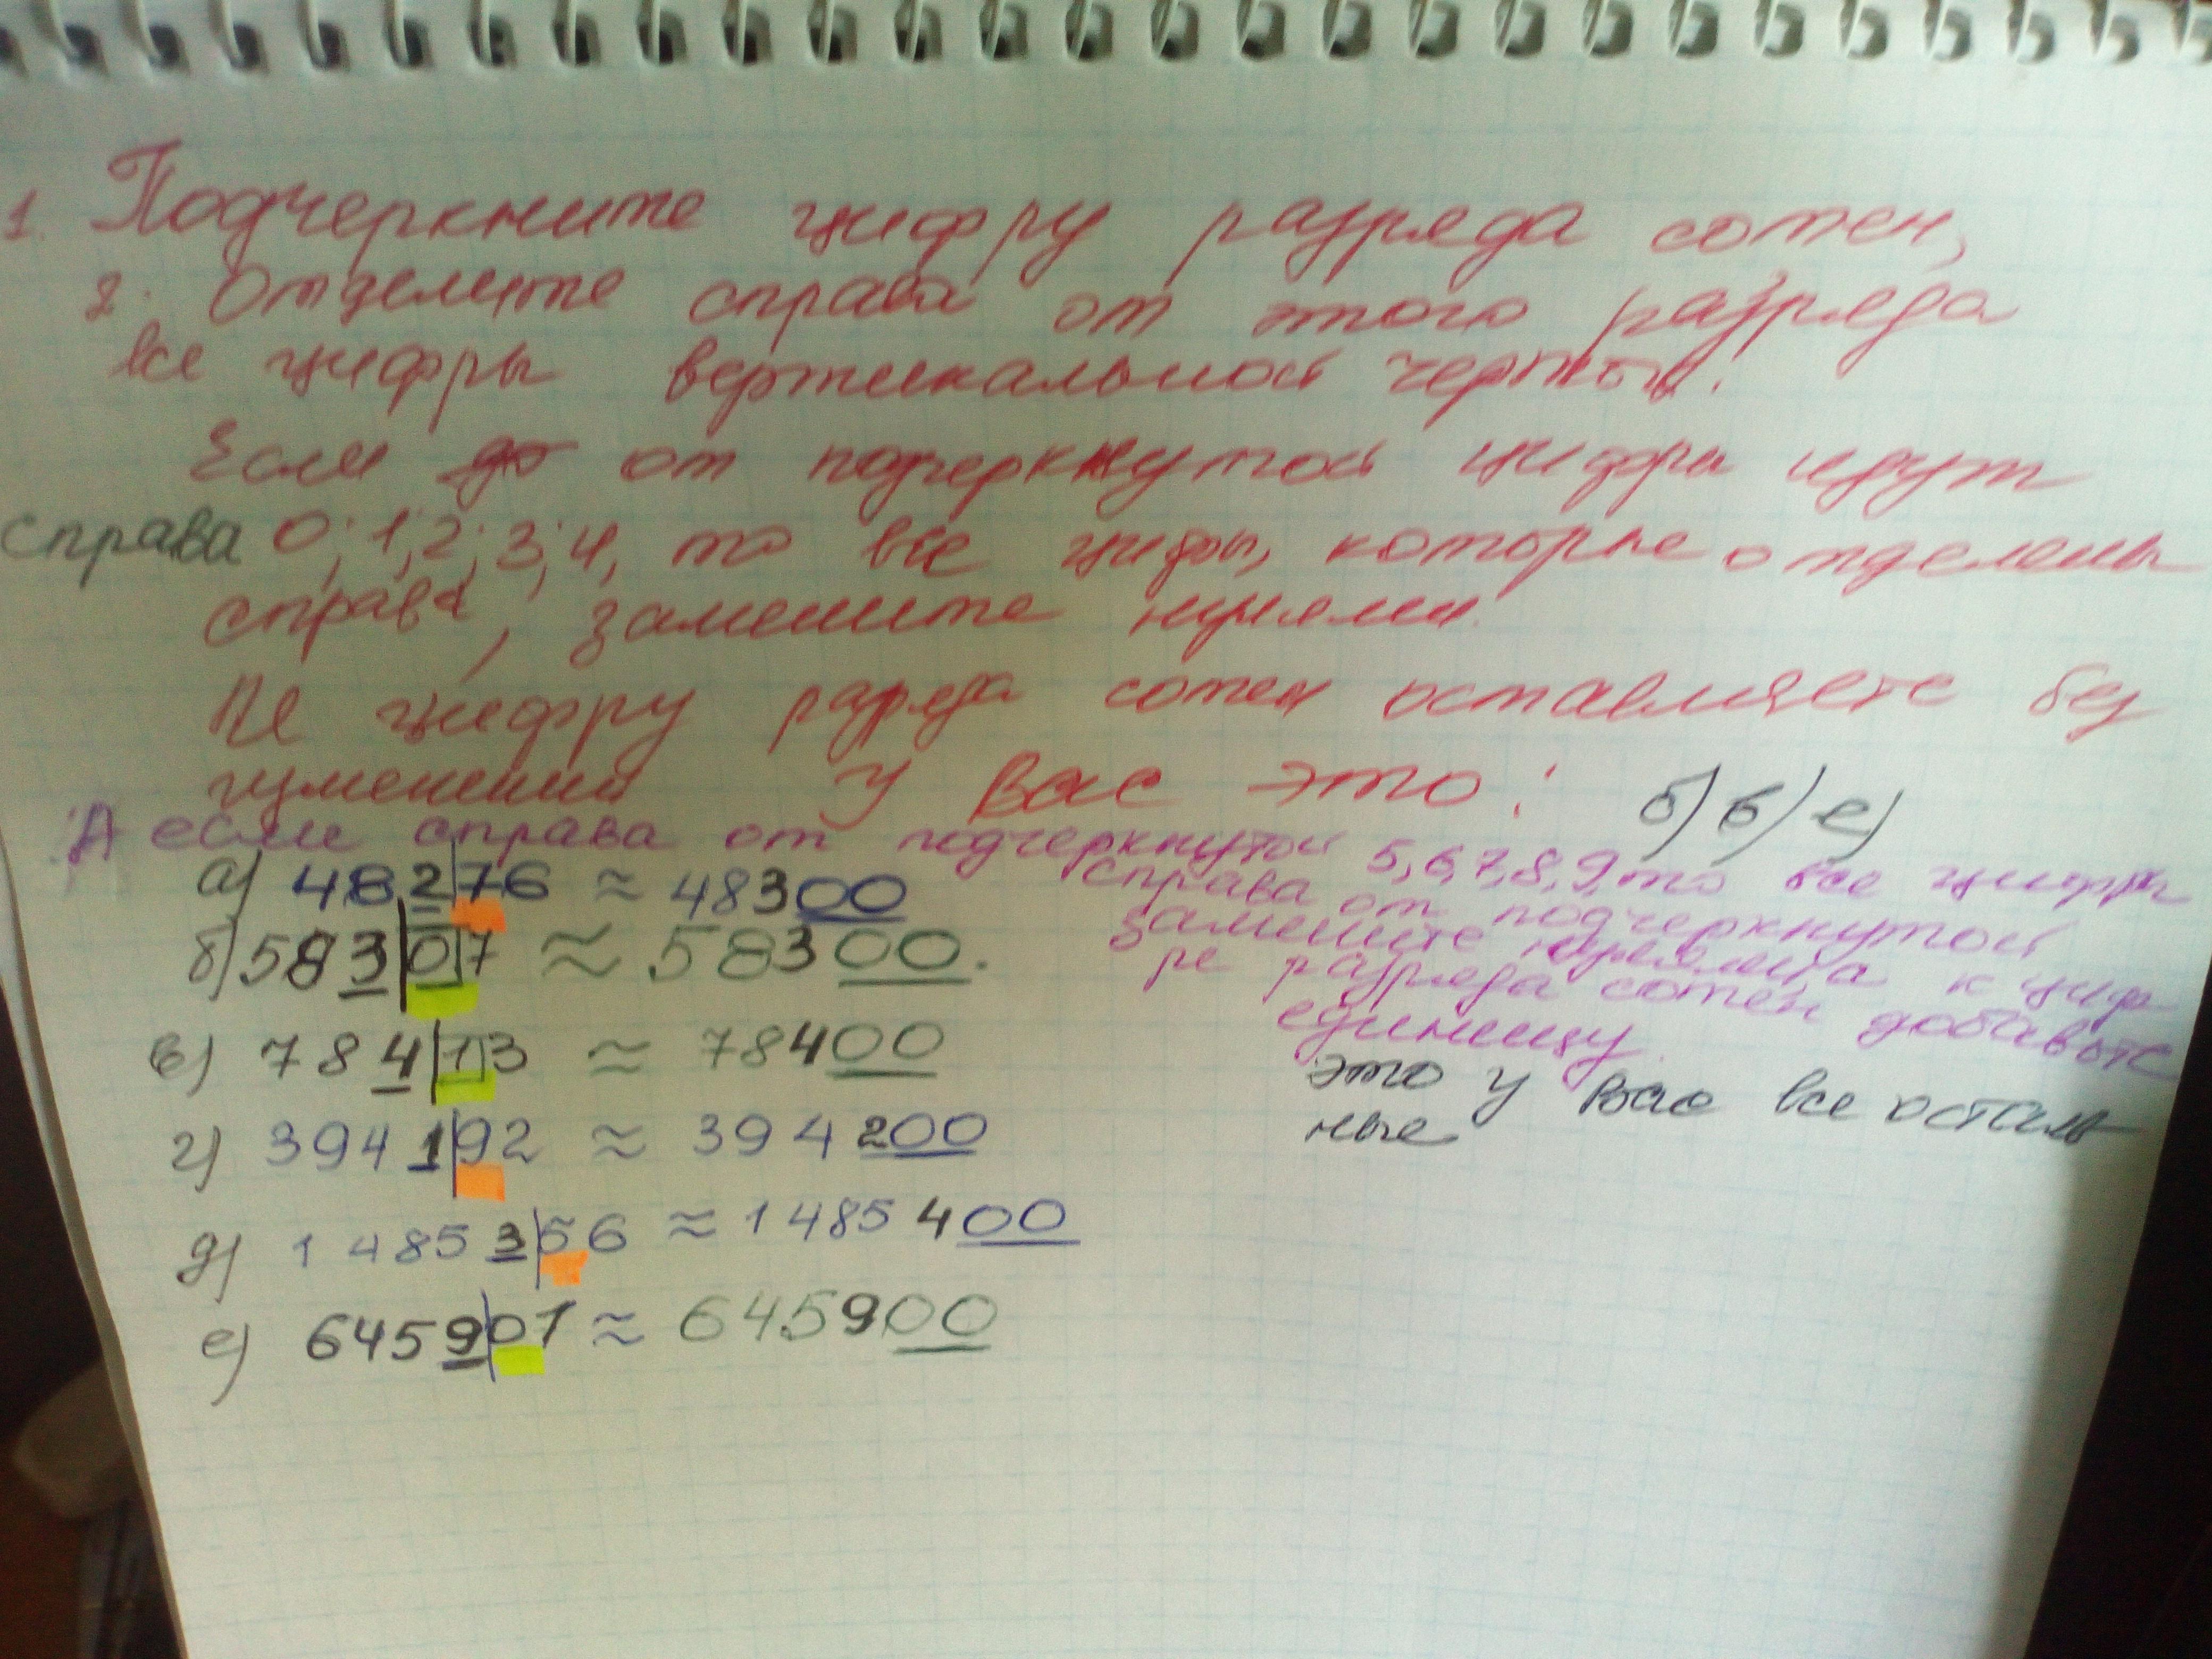 1. Подчеркните цифру разряда сотен,
2. Отделите справа от этого разряда
все цифры вертикальной чертой!
Если до от подчеркнутой цифры идут
справа 0; 1; 2; 3; 4, то все цифры, которые отделены
справа, замените нулями.
И цифру разряда сотен оставляете без
изменений У вас это: б) в) е)
А если справа от подчеркнутой 5,6,7,8,9, то все цифры
справа от подчеркнутой
замените нулями а к циф
ре разряда сотен добавьте
единицу.
это у вас все осталь
ные
а) 48 2|76 ≈ 48300
б) 583|07 ≈ 58300.
в) 784|13 ≈ 78400
г) 394 1|92 ≈ 394 200
д) 1 485 3|56 ≈ 1 485 400
е) 645 9|01 ≈ 645900